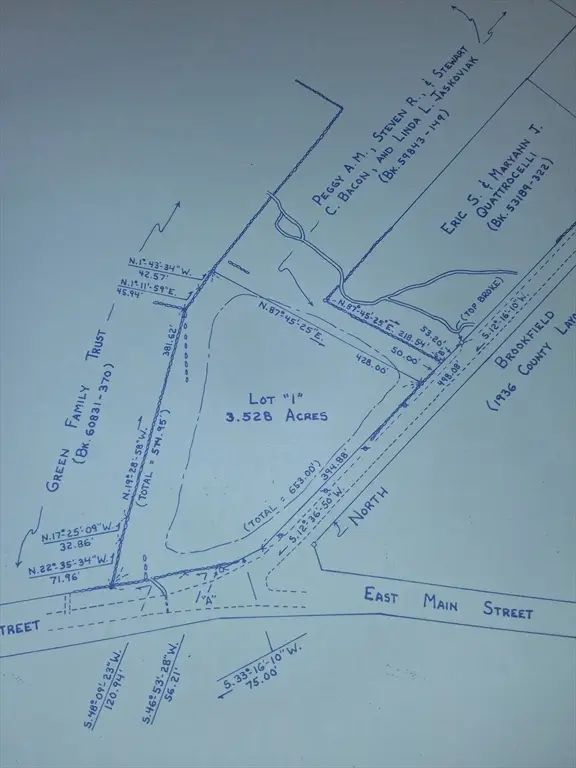 PEGGY A.M., STEVEN R., & STEWART
C. BACON, AND LINDA L. JASKOVIAK
(BK. 59843-149)
ERIC S. & MARYANN J.
QUATTROCELLI
(BK. 53189-322)
N.1°-43'-34"W.
42.57'
N.1°-11'-59"E.
45.94'
N.87°-45'-25"E.
428.00'
N.87°-45'-25"E. 218.54'
50.00'
53.20'
(TOP BROKE)
S.12°-16'-10"W.
498.08'
BROOKFIELD
(1936 COUNTY
GREEN FAMILY TRUST
(BK. 60831-370)
381.62'
N.19°-28'-58"W.
(TOTAL = 574.95')
LOT "1"
3.528 ACRES
394.88'
(TOTAL = 653.00')
S.12°-36'-50"W.
NORTH
N.17°-25'-09"W.
32.86'
N.22°-35'-34"W.
71.96'
"A"
TREET
EAST MAIN STREET
S.48°-09'-23"W.
120.94'
S.46°-53'-28"W.
56.21'
S.33°-16'-10"W.
75.00'